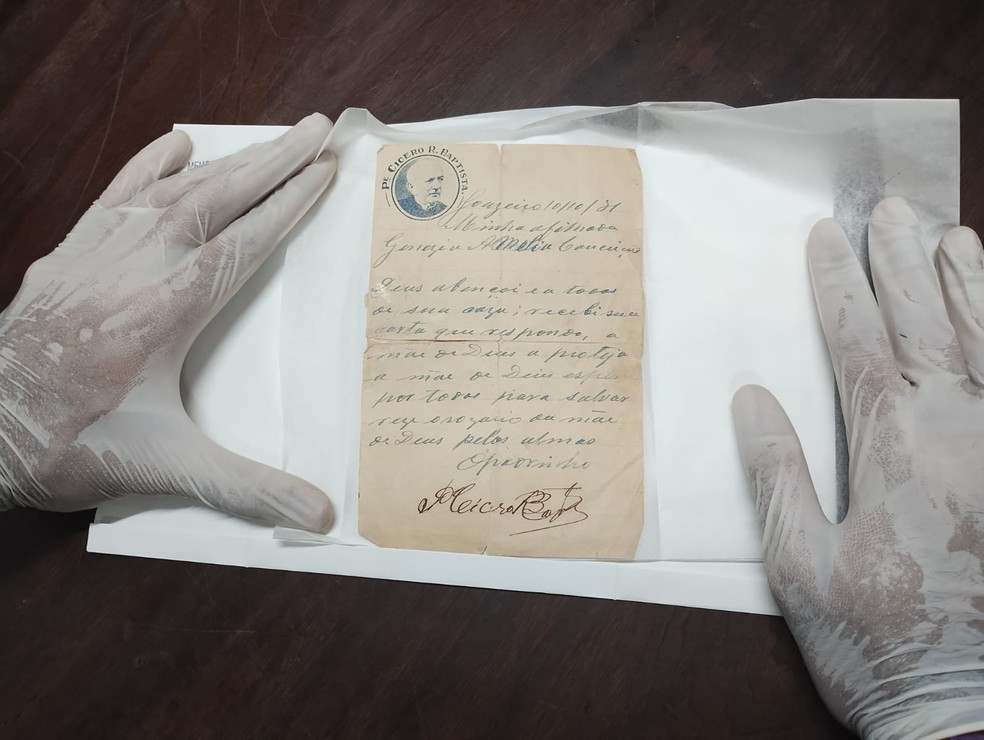 Pe CICERO R. BAPTISTA.
Joazeiro 10/10/31
Minha afilhada
Amelia Conceição
Deus abençoi ea todos
de sua caza; recebi sua
carta que respondo, a
mãe de Deus a proteja
a mãe de Deus
por todos para salvar
reze o rozario da mãe
de Deus pelas almas
Opadrinho
Pe Cicero R Bapta